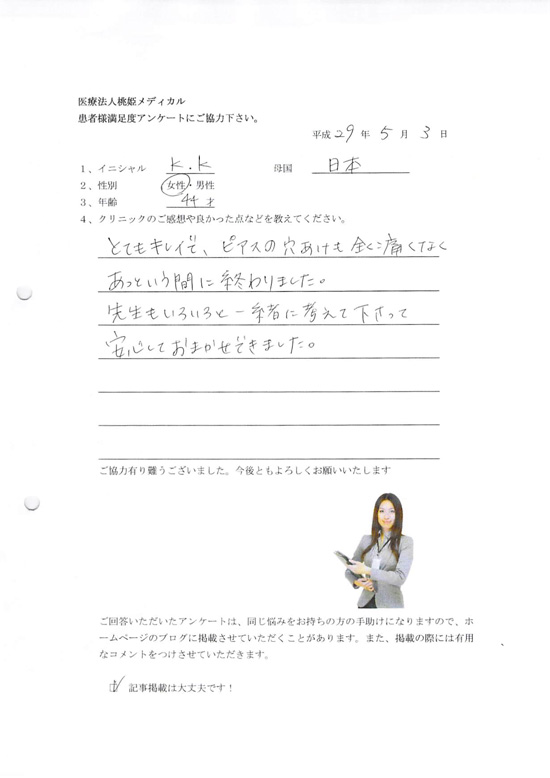 医療法人桃姫メディカル
患者様満足度アンケートにご協力下さい。
平成 29 年 5 月 3 日
1、イニシャル K.K 母国 日本
2、性別 女性・男性
3、年齢 44才
4、クリニックのご感想や良かった点などを教えてください。
とてもキレイで、ピアスの穴あけも全く痛くなく
あっという間に終わりました。
先生もいろいろと一緒に考えて下さって
安心しておまかせできました。
ご協力有り難うございました。今後ともよろしくお願いいたします
ご回答いただいたアンケートは、同じ悩みをお持ちの方の手助けになりますので、ホ
ームページのブログに掲載させていただくことがあります。また、掲載の際には有用
なコメントをつけさせていただきます。
☑ 記事掲載は大丈夫です！